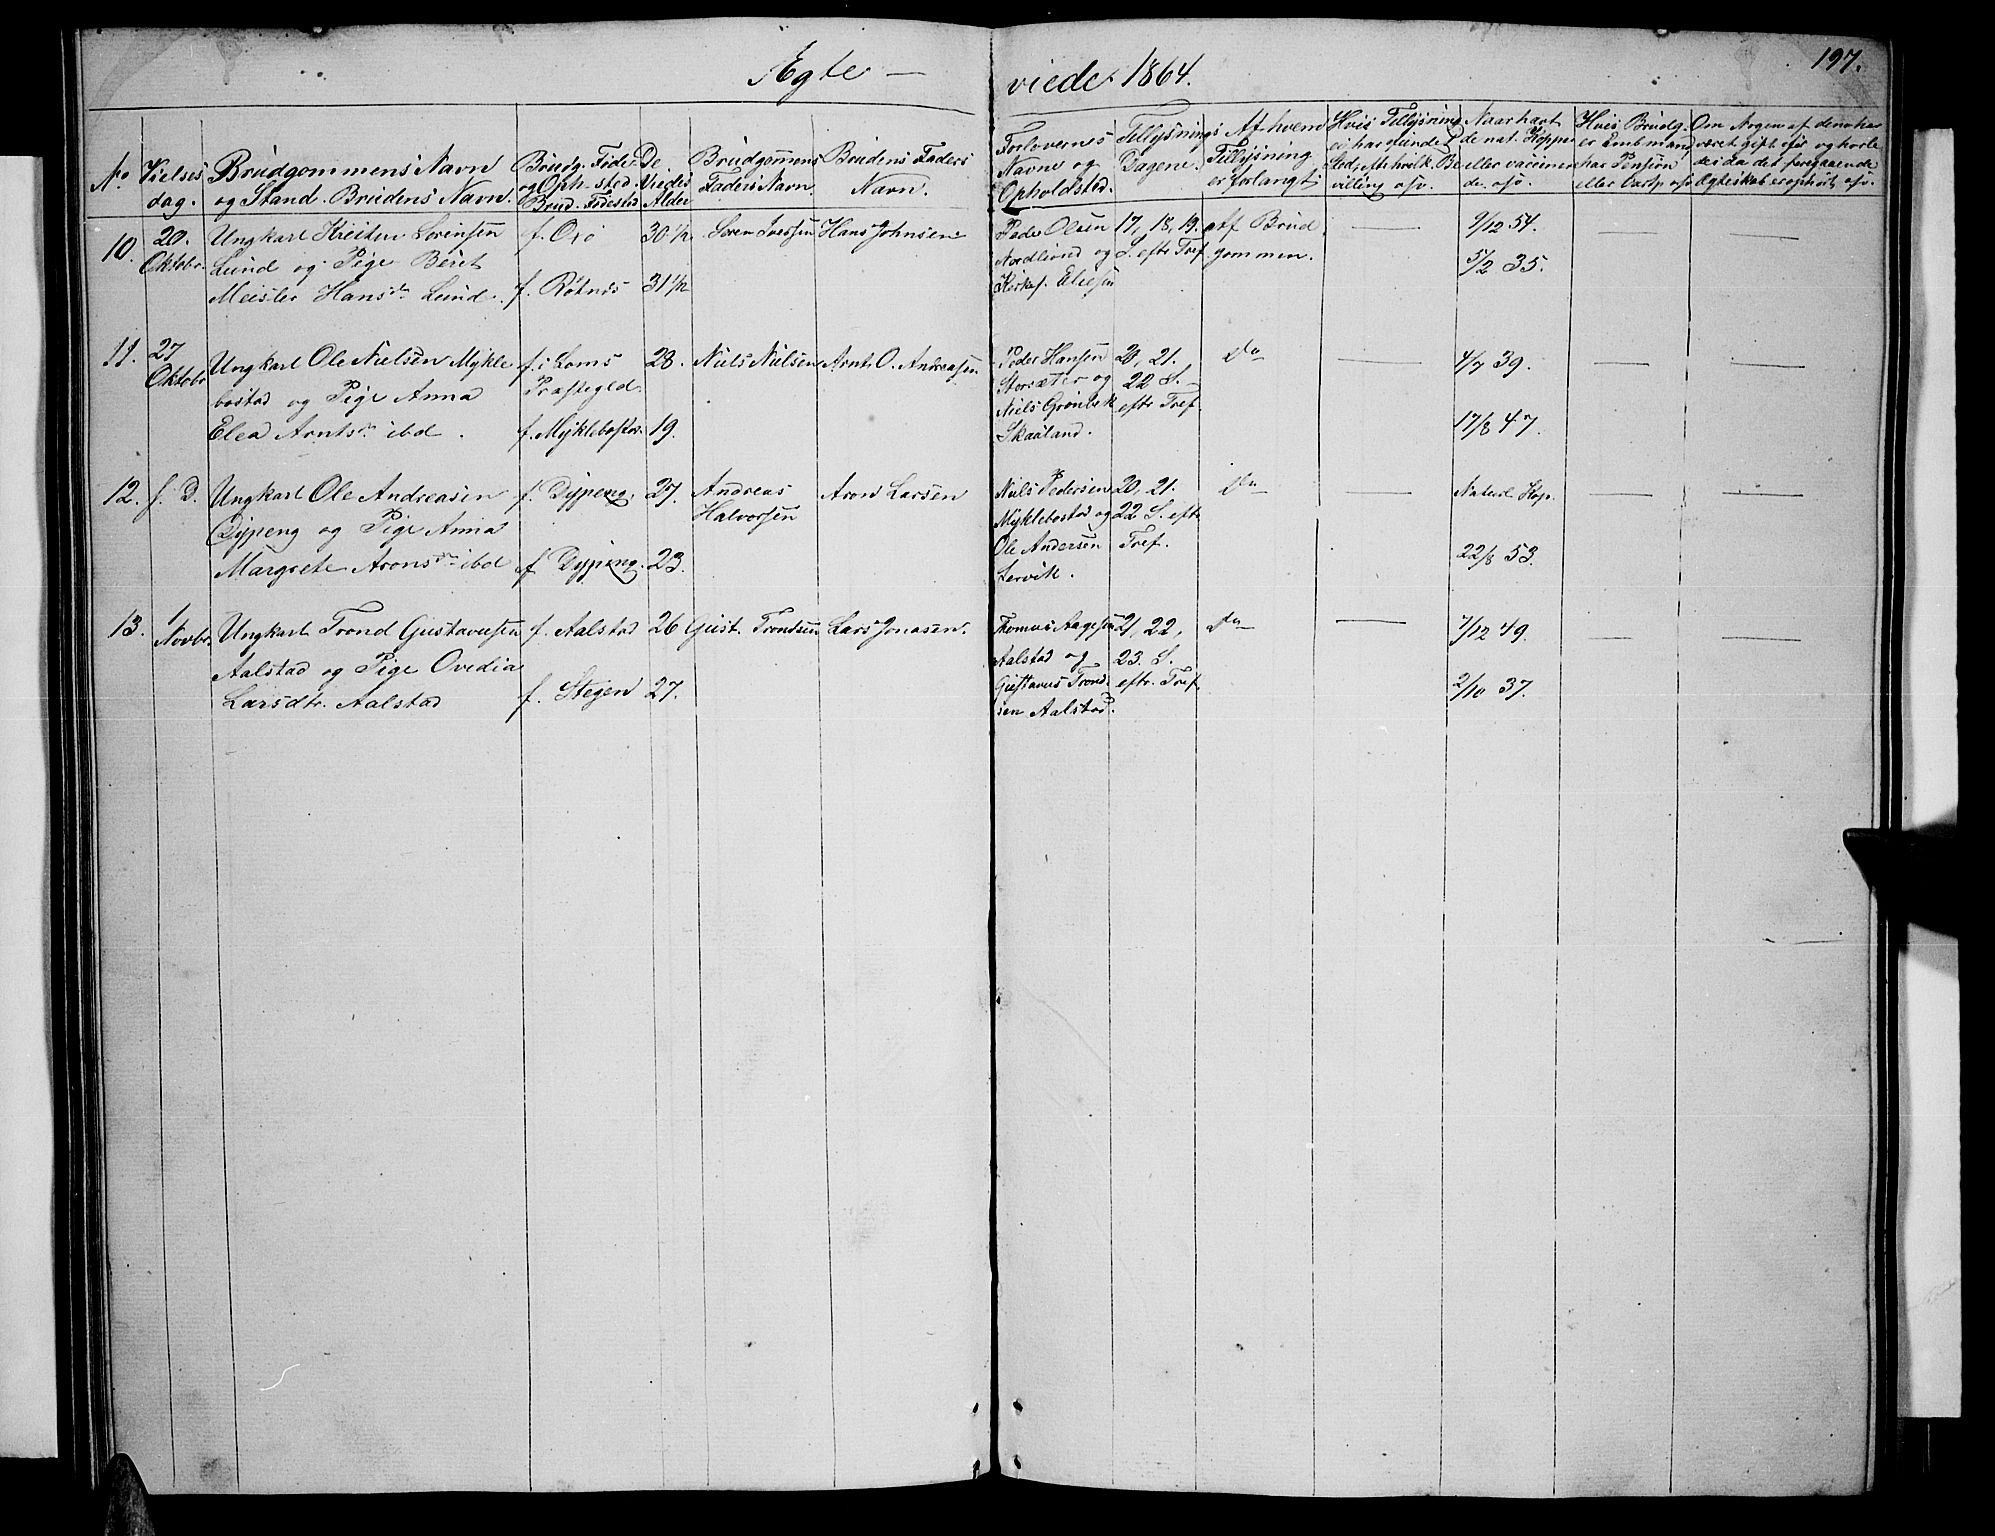 197.
Ægte — viede 1864.
No
Vielses
dag.
Brudgommens Navn
og Stand. Brudens Navn.
Brudg. Føde
og Oph. sted.
Brud. Fødested
De
Viedes
Alder
Brudgommens
Faders Navn.
Brudens Faders
Navn.
Forlovernes
Navne og
Opholdsted.
Tillysnings
Dagene.
Af hvem
Tillysning
er forlangt
Hvis Tillysning
ei har funde
Sted, At hvilk. Be
villing osv.
Naar havt
de nat. Kopper
eller vaccine
de. osv.
Hvis Brudg.
er Embmand,
har Pension
eller
Om Nogen af dem ha
veret gift før og hvor
det foregaaende
Egteskab er ophört osv.
10.
20.
Oktobr.
Ungkarl Kristen Sörensen
Lund og Pige Beret
Meister Hansdr. Lund.
f. Orö
f. Røtnes
30 1/2
31 1/2
Sören Iversen
Hans Johnsen
Peder Olsen
Nordlund og
Eliesen
17, 18, 19.
S. eftr Tref
Af Brud
gommen.
9/12 54.
5/2 35.
11.
27
Oktobr
Ungkarl Ole Nielsen Mykle
bostad og Pige Anna
Elea Arntsdr. ibd.
f. i Loms
Præstegld.
f. Myklebostad
28.
19.
Niels Nielsen
Arnt O. Andreasen
Peder Hansen
Storsæter og
Niels Grönbek
Skaaland.
20, 21.
22 S.
eftr Tref.
Do
4/7 39.
17/8 47.
12.
s. D.
Ungkarl Ole Andreasen
Dypeng og Pige Anna
Margrete Aronsdr. ibd
f. Dypeng.
f Dypeng.
27.
23.
Andreas
Halvorsen
Aron Larsen
Niels Pedersen
Myklebostad og
Ole Andersen
Lervik.
20, 21.
22 S. eftr
Tref.
Do
Naturl Kop.
22/8 53.
13.
1
Novbr.
Ungkarl Trond Gustavusen
Aalstad og Pige Ovedia
Larsdtr. Aalstad
f. Aalstad
f. Stegen
26
27.
Gust. Trondsen
Lars Jonasen.
Thomas Aagesen
Aalstad og
Gustavus Trond
sen Aalstad.
21, 22,
23. S.
eftr. Tref.
Do
7/12 49.
2/10 37.